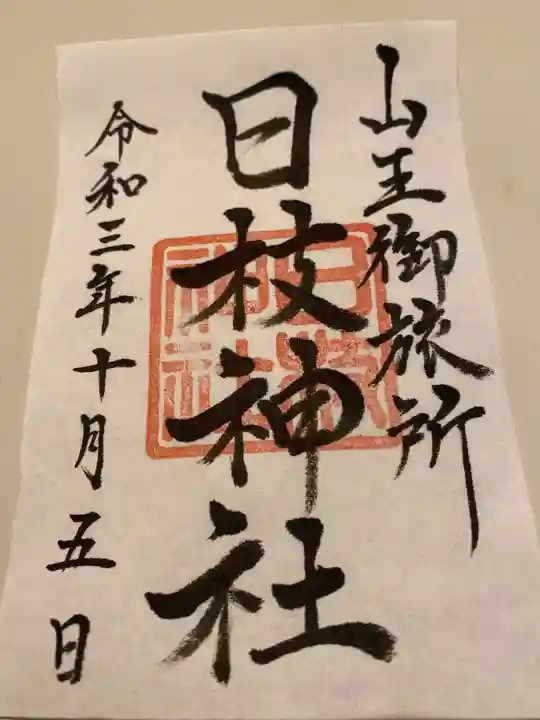 山王御旅所
日枝神社
日枝神社
令和三年十月五日